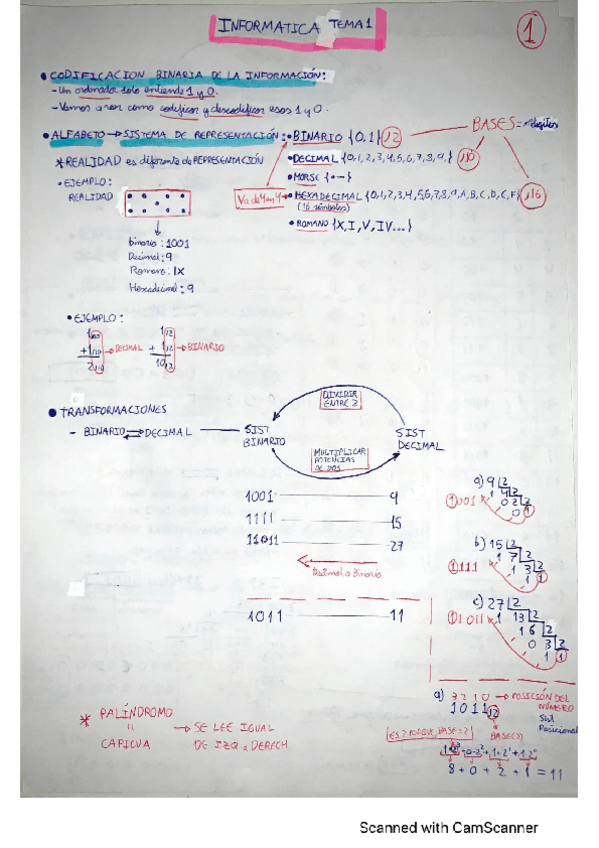 INFORMATICA TEMA 1
1
• CODIFICACION BINARIA DE LA INFORMACIÓN:
- Un ordenador solo entiende 1 y 0.
- Vamos a ver como codificar y descodificar esos 1 y 0.
• ALFABETO → SISTEMA DE REPRESENTACIÓN: • BINARIO {0,1}12
BASES =
* REALIDAD es diferente de REPRESENTACIÓN
• DECIMAL {0,1,2,3,4,5,6,7,8,9,}110
• MORSE {•—}
• EJEMPLO:
REALIDAD
Va de 4 en 4
• HEXADECIMAL {0,1,2,3,4,5,6,7,8,9,A,B,C,D,E,F}116
(16 símbolos)
• ROMANO {X,I,V,IV...}
binario: 1001
Decimal: 9
Romano: IX
Hexadecimal: 9
• EJEMPLO:
1/10 1/2
+1/10 → DECIMAL + 1/2 → BINARIO
2/10 10/2
• TRANSFORMACIONES
- BINARIO ⇄ DECIMAL
SIST BINARIO
DIVIDIR ENTRE 2
MULTIPLICAR POTENCIAS DE DOS
SIST DECIMAL
1001 9
1111 15
11011 27
decimal a Binario
1011 11
a) 9 |2
1 4 |2
0 2 |2
0 1
1001
b) 15 |2
1 7 |2
1 3 |2
1 1
1111
c) 27 |2
1 13 |2
1 6 |2
0 3 |2
1 1
11011
a) 3 2 1 0 → POSICIÓN DEL NÚMERO
1 0 1 1 12
Sist Posicional
BASE(2)
ES 2 PORQUE BASE = 2
1·2³+0·2²+1·2¹+1·2⁰
8 + 0 + 2 + 1 = 11
* PALÍNDROMO
"
CAPICUA
→ SE LEE IGUAL
DE IZQ a DERECH
Scanned with CamScanner